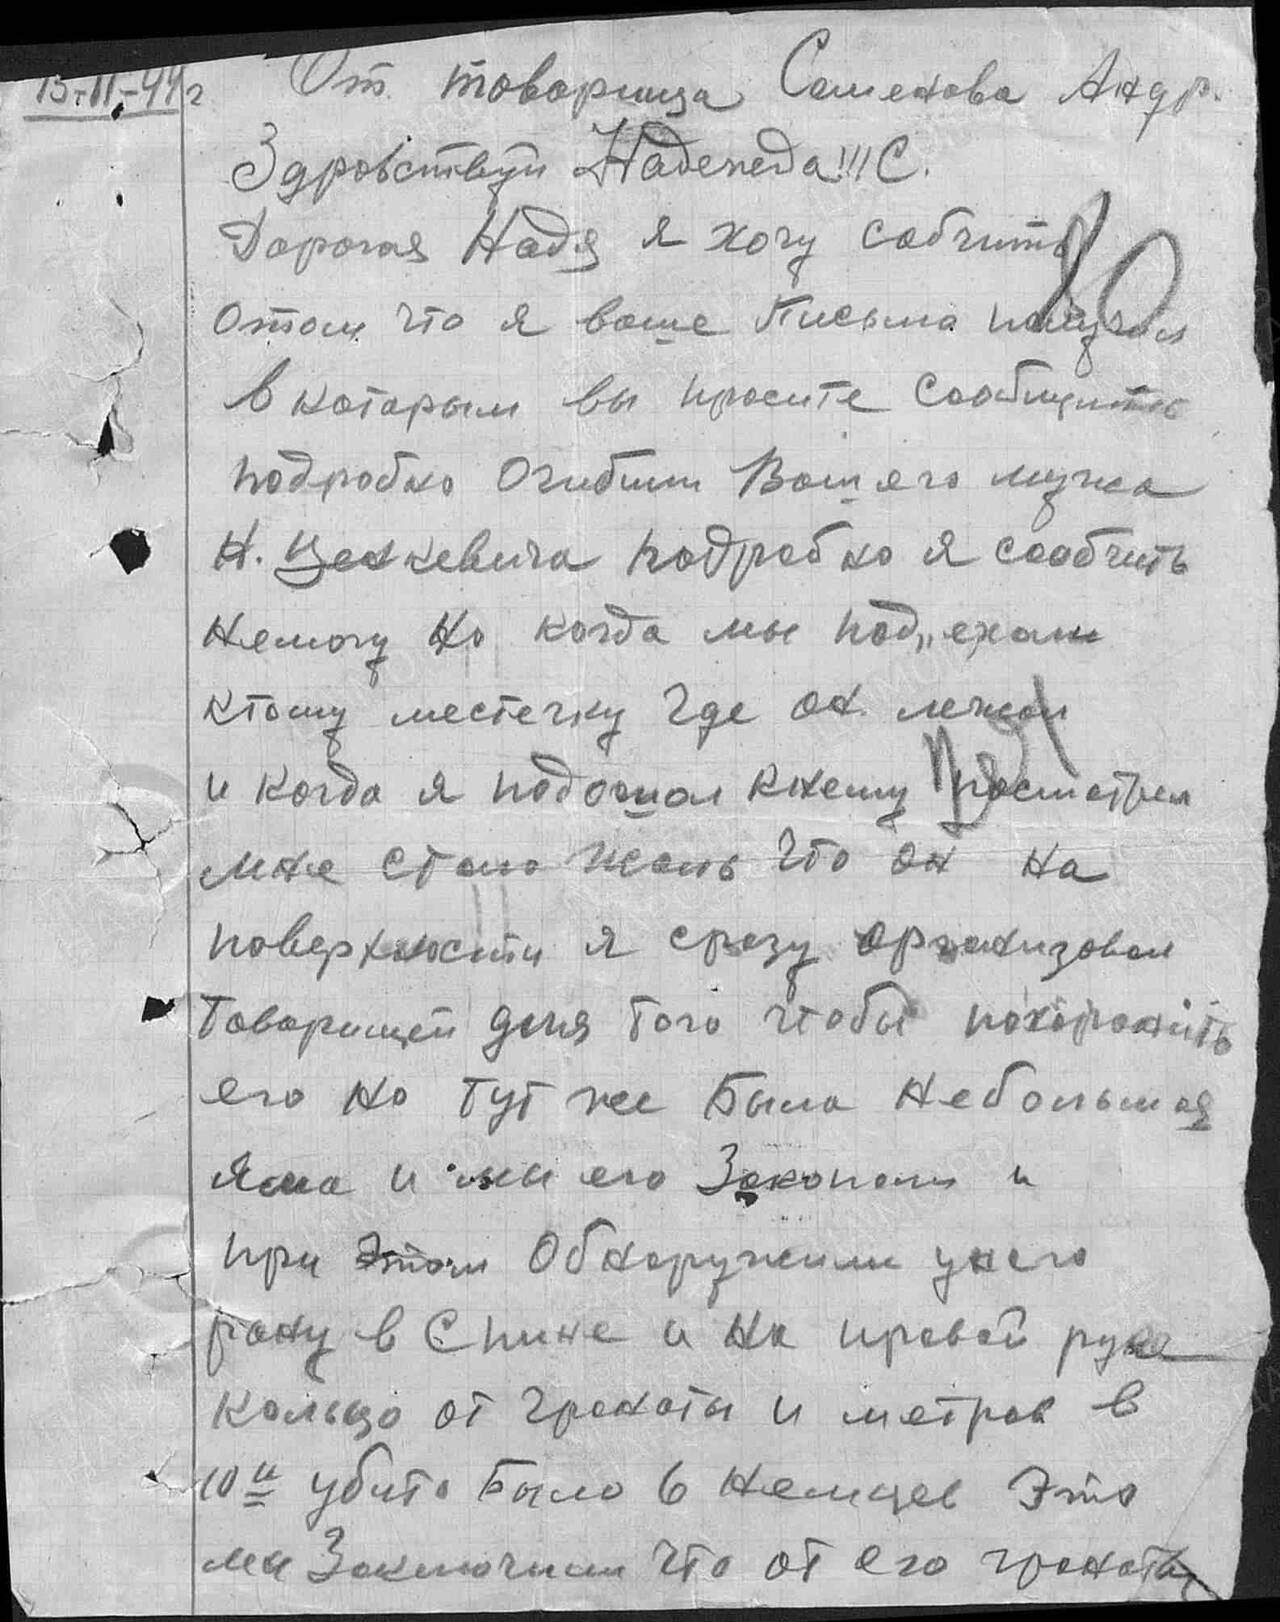 13-II-44 г От товарища Семенова Андр.
Здровствуй Надежда!!! С.
Дорогая Надя я хочу собчить
отом что я ваше Письмо получил
в каторым вы просите Сообщить
подробно Огибили Вашего мужа
Н. Ценкевича подробно я сообчить
немогу Но когда мы под„ехали
ктому местечку где он лежал
и когда я подошол кнему посмотрел
мне стало жаль что он на
поверхности я сразу организовал
Товарищей для того чтобы похоронить
его но тут же Была небольшая
яма и мы его Закопали и
при этом Обноружили унего
рану в Спине и на правой руке
кольцо от гранаты и метров в
10и убито Было 6 немцев Это
мы Заключили что от его гранаты